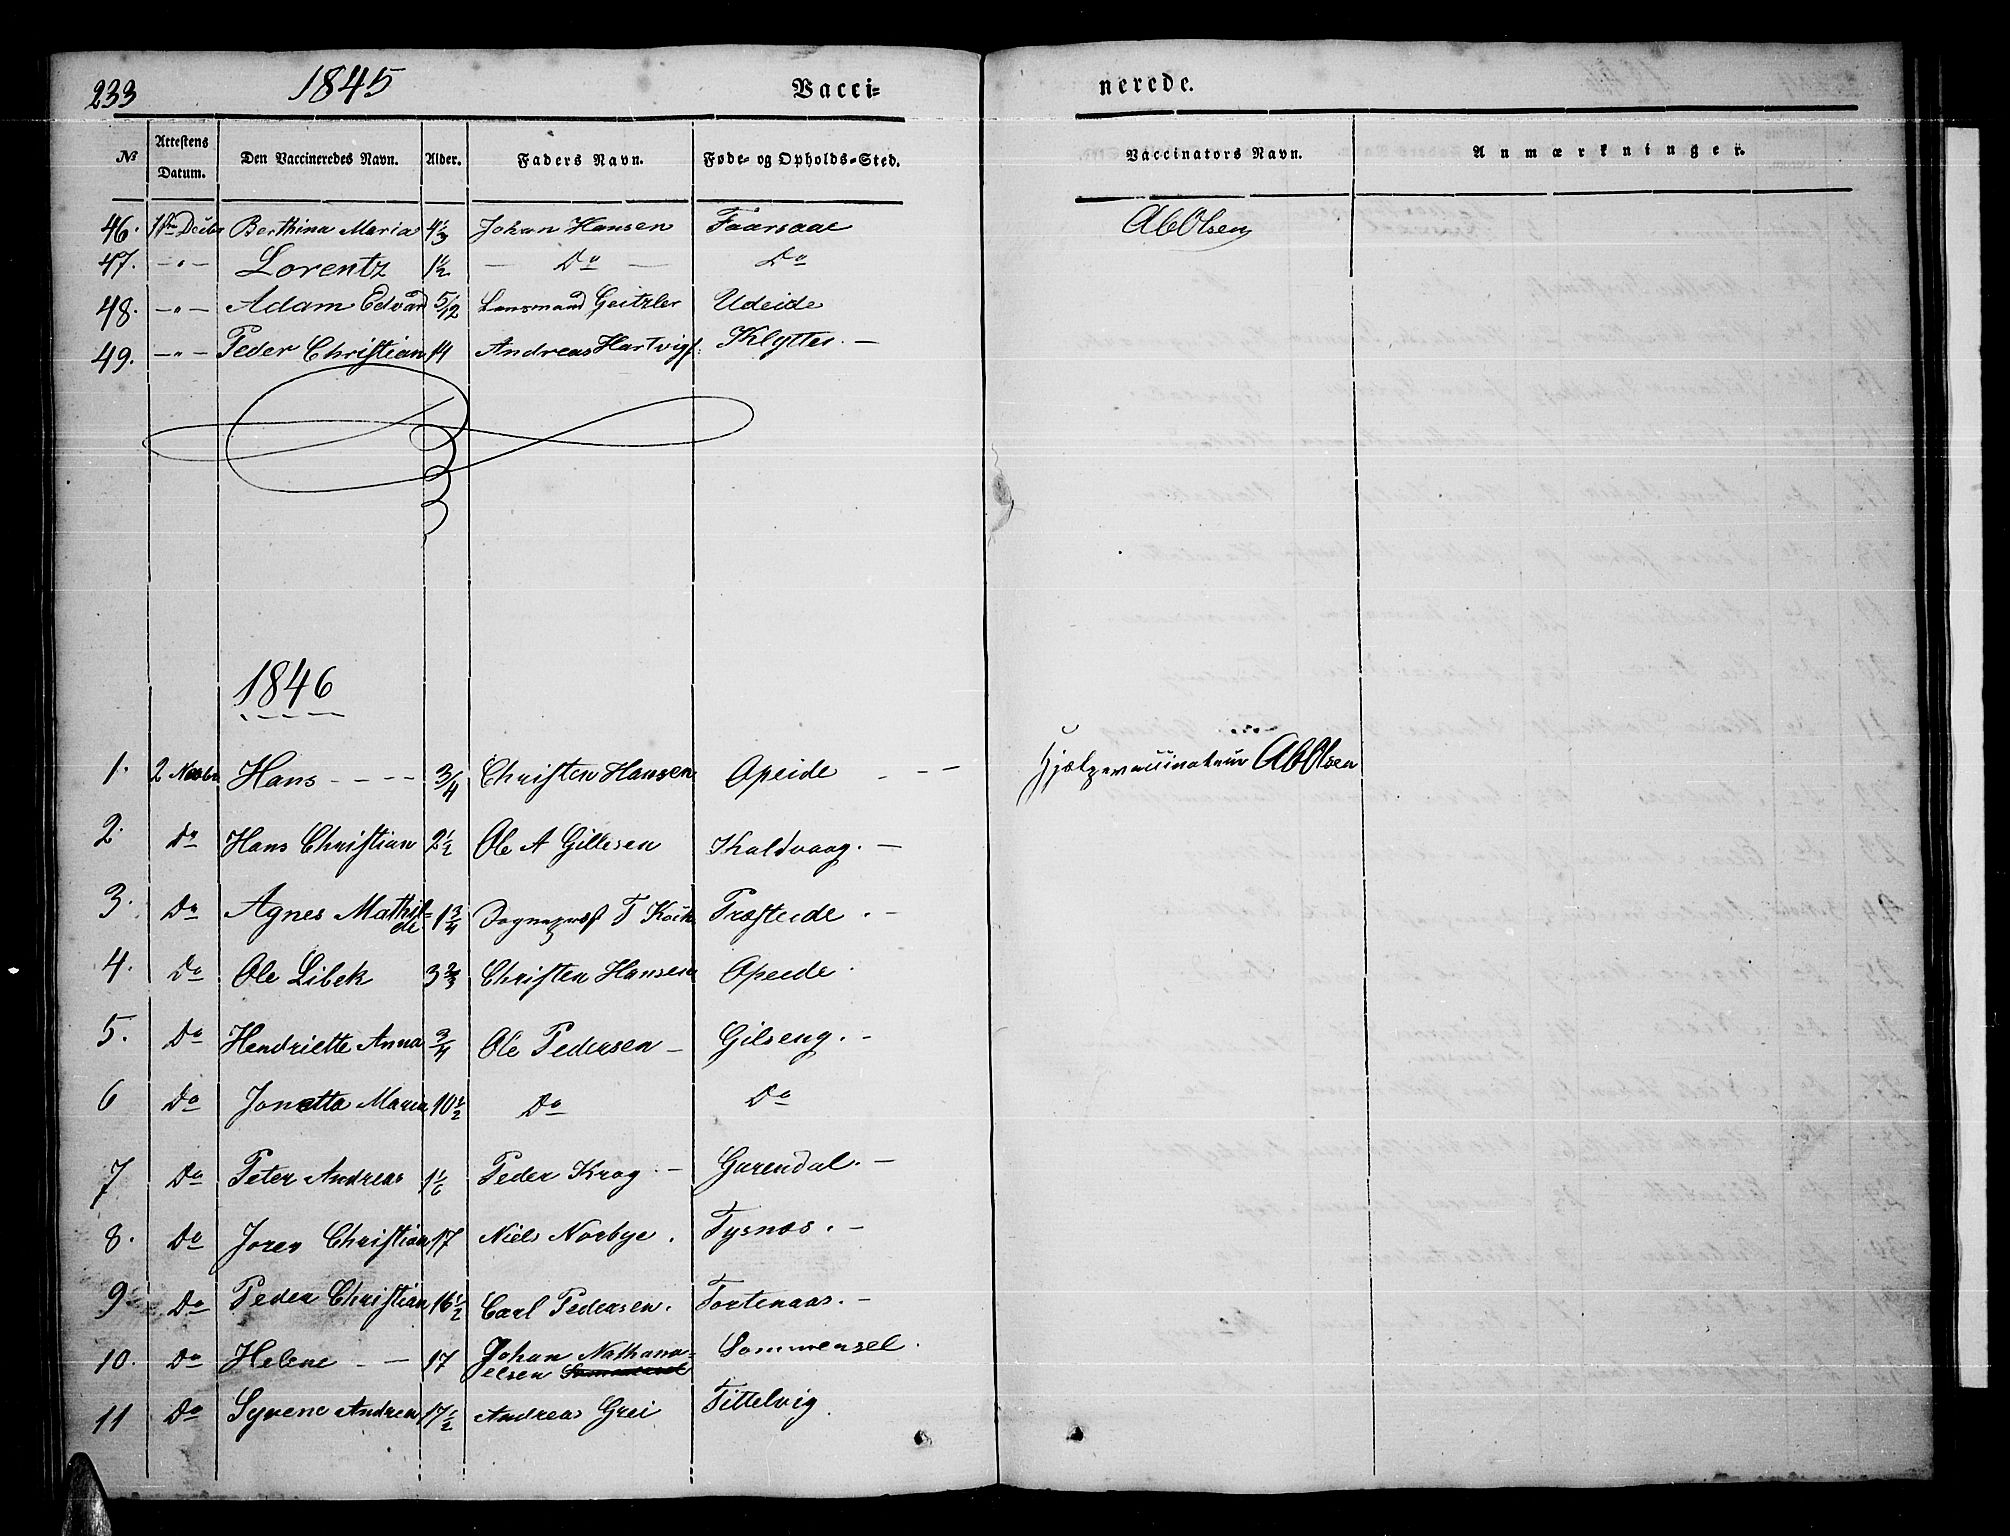 233 1845 Vacci- nerede.
№ Attestens Datum. Den Vaccineredes Navn. Alder. Faders Navn. Føde- og Opholds-Sted. Vaccinators Navn. Anmærkninger.
46. Decbr Berthina Maria 4⅓ Johan Hansen Faarsaae AbOlsen
47. -"- Lorentz 1½ — Do — Do
48. -"- Adam Edvard 5/12 Lensmand Geitzler Udeide
49. -"- Peder Christian 14 Andreas Hartvigs: Klyttes. —
1846
1. 2 Novbr Hans - - - - 3/4 Christen Hansen Apeide - - — Hjelpevaccinateur AbOlsen
2. Do Hans Christian 2½ Ole A Gillesen Kaldvaag. —
3. Do Agnes Mathil=
de 1¾ Sogneprest T Kock Præsteide . —
4. Do Ole Libek 3⅔ Christen Hansen Apeide .
5. Do Henriette Anna ¾ Ole Pedersen — Gilseng. —
6 Do Jonetta Maria 10½ Do Do
7 Do Peter Andreas 1⅙ Peder Krog. — Garendal. —
8. Do Joren Christian 17 Niels Norbye . Tysnes . —
9. Do Peder Christian 16½ Carl Pedersen . Tortenaas. —
10. Do Helene - — 17 Johan Nathana=
elsen Sommersel Sommersel .
11 Do Syvene Andrea 17½ Andreas Grei Tittelvig